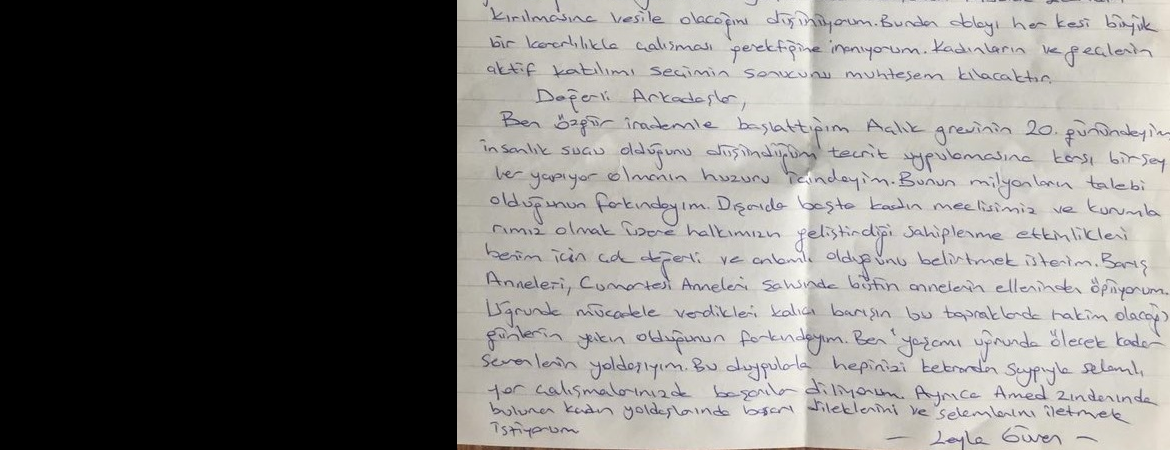 kırılmasına vesile olacağını düşünüyorum. Bundan dolayı her kesi büyük
bir kararlılıkla çalışması gerektiğine inanıyorum. Kadınların ve gençlerin
aktif katılımı seçimin sonucunu muhteşem kılacaktır.
Değerli Arkadaşlar,
Ben özgür irademle başlattığım Açlık grevinin 20. günündeyim
insanlık suçu olduğunu düşündüğüm tecrit uygulamasına karşı birşey
ler yapıyor olmanın huzuru içindeyim. Bunun milyonların talebi
olduğunun farkındayım. Dışarıda başta kadın meclisimiz ve kurumla
rımız olmak üzere halkımızın geliştirdiği sahiplenme etkinlikleri
benim için çok değerli ve anlamlı olduğunu belirtmek isterim. Barış
Anneleri, Cumartesi Anneleri şahsında bütün annelerin ellerinden öpüyorum.
Uğrunda mücadele verdikleri kalıcı barışın bu topraklarda hakim olacağı
günlerin yakın olduğunun farkındayım. Ben yaşamı uğrunda ölecek kadar
sevenlerin yoldaşıyım. Bu duygularla hepinizi tekrardan saygıyla selamlı
yor çalışmalarınızda başarılar diliyorum. Ayrıca Amed zindanında
bulunan kadın yoldaşlarında başarı dileklerini ve selamlarını iletmek
istiyorum
— Leyla Güven —